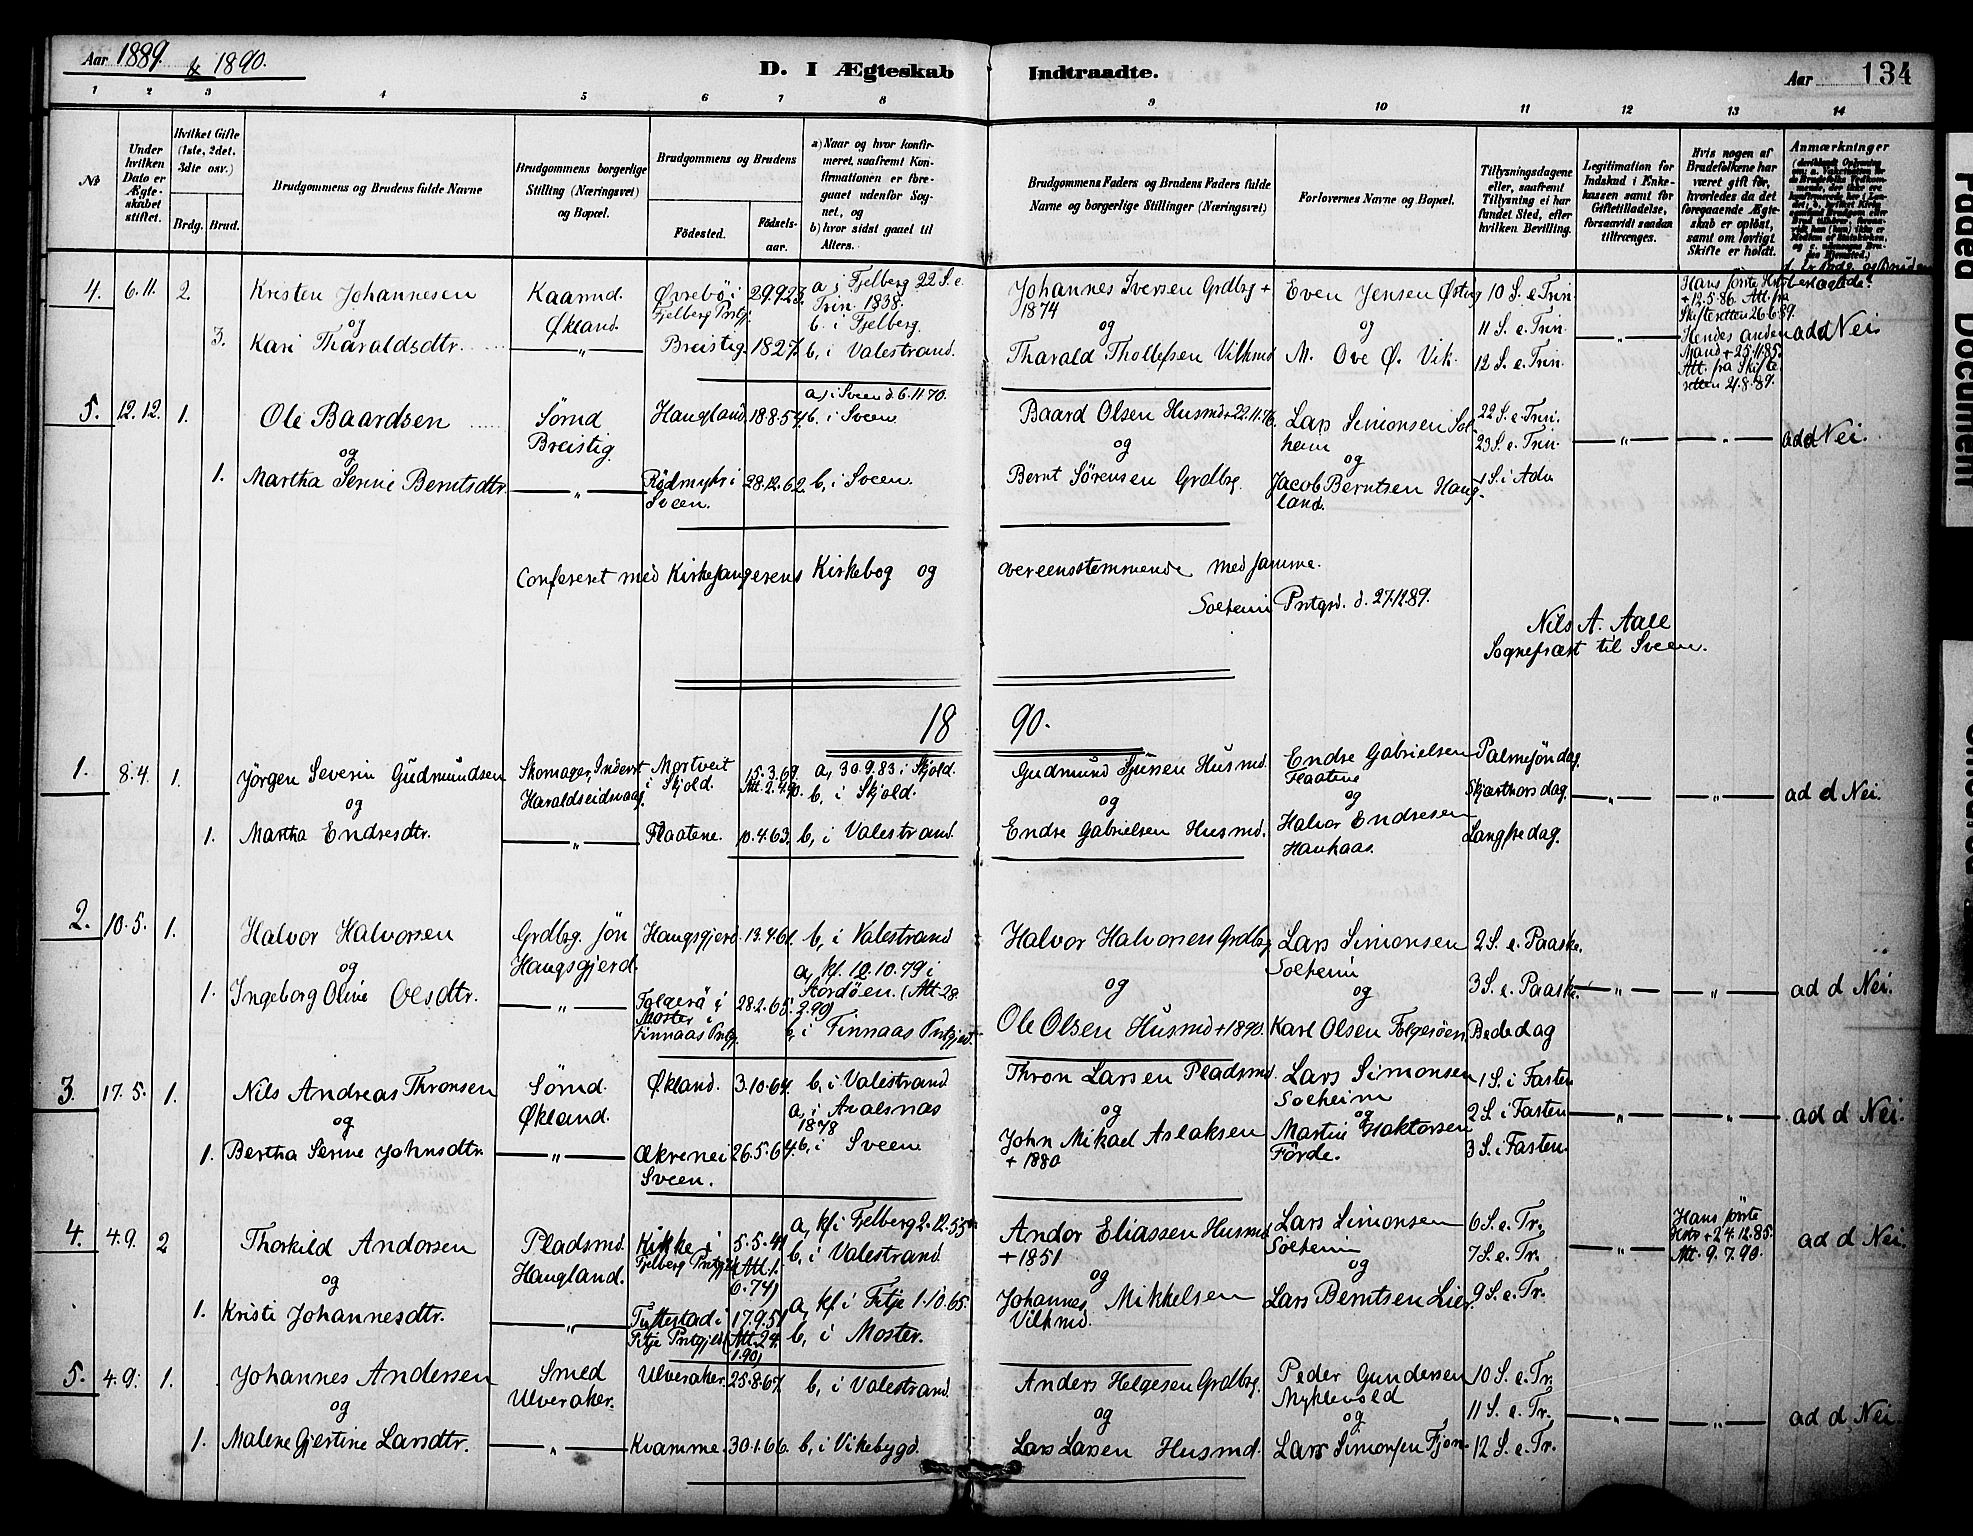 Aar 1889. & 1890.
D. I Ægteskab Indtraadte.
Aar 134
1 2 3 4 5 6 7 8 9 10 11 12 13 14
No
Under hvilken Dato er Ægteskabet stiftet.
Hvilket Gifte (1ste, 2det. 3dte osv.)
Brdg. Brud.
Brudgommens og Brudens fulde Navne
Brudgommens borgerlige Stilling (Næringsvei) og Bopæl.
Brudgommens og Brudens
Födested. Födsels-aar.
a) Naar og hvor konfirmeret, saafremt Konfirmationen er foregaaet udenfor Sognet, og
b) hvor sidst gaaet til Alters.
Brudgommens Faders og Brudens Faders fulde Navne og borgerlige Stillinger (Næringsvei)
Forlovernes Navne og Bopæl.
Tillysningsdagene eller, saafremt Tillysning ei har fundet Sted, efter hvilken Bevilling.
Legitimation for Indskud i Enkekassen samt for Giftetilladelse, forsaavidt saadan tiltrænges.
Hvis nogen af Brudefolkene har været gift för, hvorledes da det foregaaende Ægteskab er oplöst, samt om lovligt Skifte er holdt.
Anmærkninger
4. 6.11. 2. Kristen Johannesen Kaarmd. Økland. 29.9.23. a, i Fjelberg 22 S. e. Trin. 1838. b. i Fjelberg. Johannes Iversen Grdbrg + 1874 Even Jensen 10 S. e. Trin.
og og og 11 S. e. Trin. — " —
3. Kari Tharaldsdtr. — " — Breistig. 1827. b, i Valestrand. Tharald Thollefsen M. Ove Ø. Vik. 12 S. e. Trin.
Hans förste Hstr + 12.5.86. Att. fra Skifteretten 26.6.89. Hendes anden Mand + 25.11.85. Att. fra Skifteretten 21.8.89. ad d Nei.
5. 12.12. 1. Ole Baardsen Sørmd Breistig. Haugland 18.8.54. a, i Sveen d. 6.11.70. b. i Sveen Baard Olsen Husmd + 22.11.76. Lars Simonsen Solheim 22 S. e. Trin.
og og og 23 S. e. Trin. — " — " ad d Nei.
1. Martha Serine Berntsdtr. — " — Rødmyhr i Sveen. 28.12.62. b, i Sveen. Bernt Sørensen Grdbrg. Jacob Berntsen Haugland. 1 S. i Adv.
Confereret med Kirkesangerens Kirkebog og overeensstemmende med samme.
Solheim Prstgrd. d. 27.12.89.
Nils A. Aall
Sognepræst til Sveen.
18 90.
1. 8.4. 1. Jörgen Severin Gudmundsen Skomager, Inderst Haraldseidvaag. Mortveit i Skjold. 15.3.69. Att. 2.4.90. a, 30.9.83 i Skjold. b, i Skjold. Gudmund Sjursen Husmd. Endre Gabrielsen Flaatene Palmesöndag.
og og og Skjærthorsdag. — " — — " — ad d Nei.
1. Martha Endresdtr. — " — Flaatene. 10.4.63. b, i Valestrand. Endre Gabrielsen Husmd. Halvor Endresen Haukaas. Langfredag.
2. 10.5. 1. Halvor Halvorsen Grdbrg. sön Haugsgjerd. Haugsgjerd. 13.4.61. b, i Valestrand Halvor Halvorsen Grdbrg Lars Simonsen Solheim 2 S. e. Paaske.
og og og 3 S. e. Paaske. — " — — " — ad d Nei.
1. Ingeborg Oline Olsdtr. — " — Folgerö i Moster i Finnaas Prstgj. 28.2.65. a, kf. 12.10.79 i Stordöen. (Att. 28. 2.90) b, i Finnaas Prstgjeld. Ole Olsen Husmd + 1890. Karl Olsen Folgeröen Bededag
3. 17.5. 1. Nils Andreas Thronsen Sørmd. Økland. Økland. 3.10.64. b, i Valestrand Thron Larsen Pladsmd. Lars Simonsen Solheim 1 S. i Fasten
og og og 2 S. i Fasten — " — — " — ad d Nei.
1. Bertha Serine Johnsdtr. — " — Økrene i Sveen. 26.5.64. a, i Avalsnæs 1878 b, i Sveen. John Mikael Aslaksen + 1880 Martin Haktorsen Förde. 3 S. i Fasten
4. 4.9. 2 Thorkild Andorsen Pladsmd. Haugland. Kikke i Fjelberg Prstgj. 5.5.41 (Att. 1. 6.74) a, kf. i Fjelberg 2.12.55 b, i Valestrand. Andor Eliassen Husmd. + 1851 Lars Simonsen Solheim 6 S. e. Tr.
og og og 7 S. e. Tr. — " — Hans förste Hstr + 24.12.85. Att. 9.7.90. ad d Nei.
1. Kristi Johannesdtr. — " — Tuftestad i Fitje Prstgjeld 17.9.51 (Att. 24. 1.90) a, kf. i Fitje 1.10.65. b, i Moster. Johannes Mikkelsen Lars Berntsen Lier. 9 S. e. Tr.
5. 4.9. 1. Johannes Andersen Smed Ulveraker. Ulveraker. 25.8.67. b, i Valestrand. Anders Helgesen Grdbrg. Peder Gundersen Myklevold 10 S. e. Tr.
og og og 11 S. e. Tr. — " — — " — ad d Nei.
1. Malene Gjertine Larsdtr. — " — Kvamme. 30.1.66. b, i Vikebygd. Lars Larsen Husmd. Lars Simonsen Fjon. 12 S. e. Tr.
Faded Document